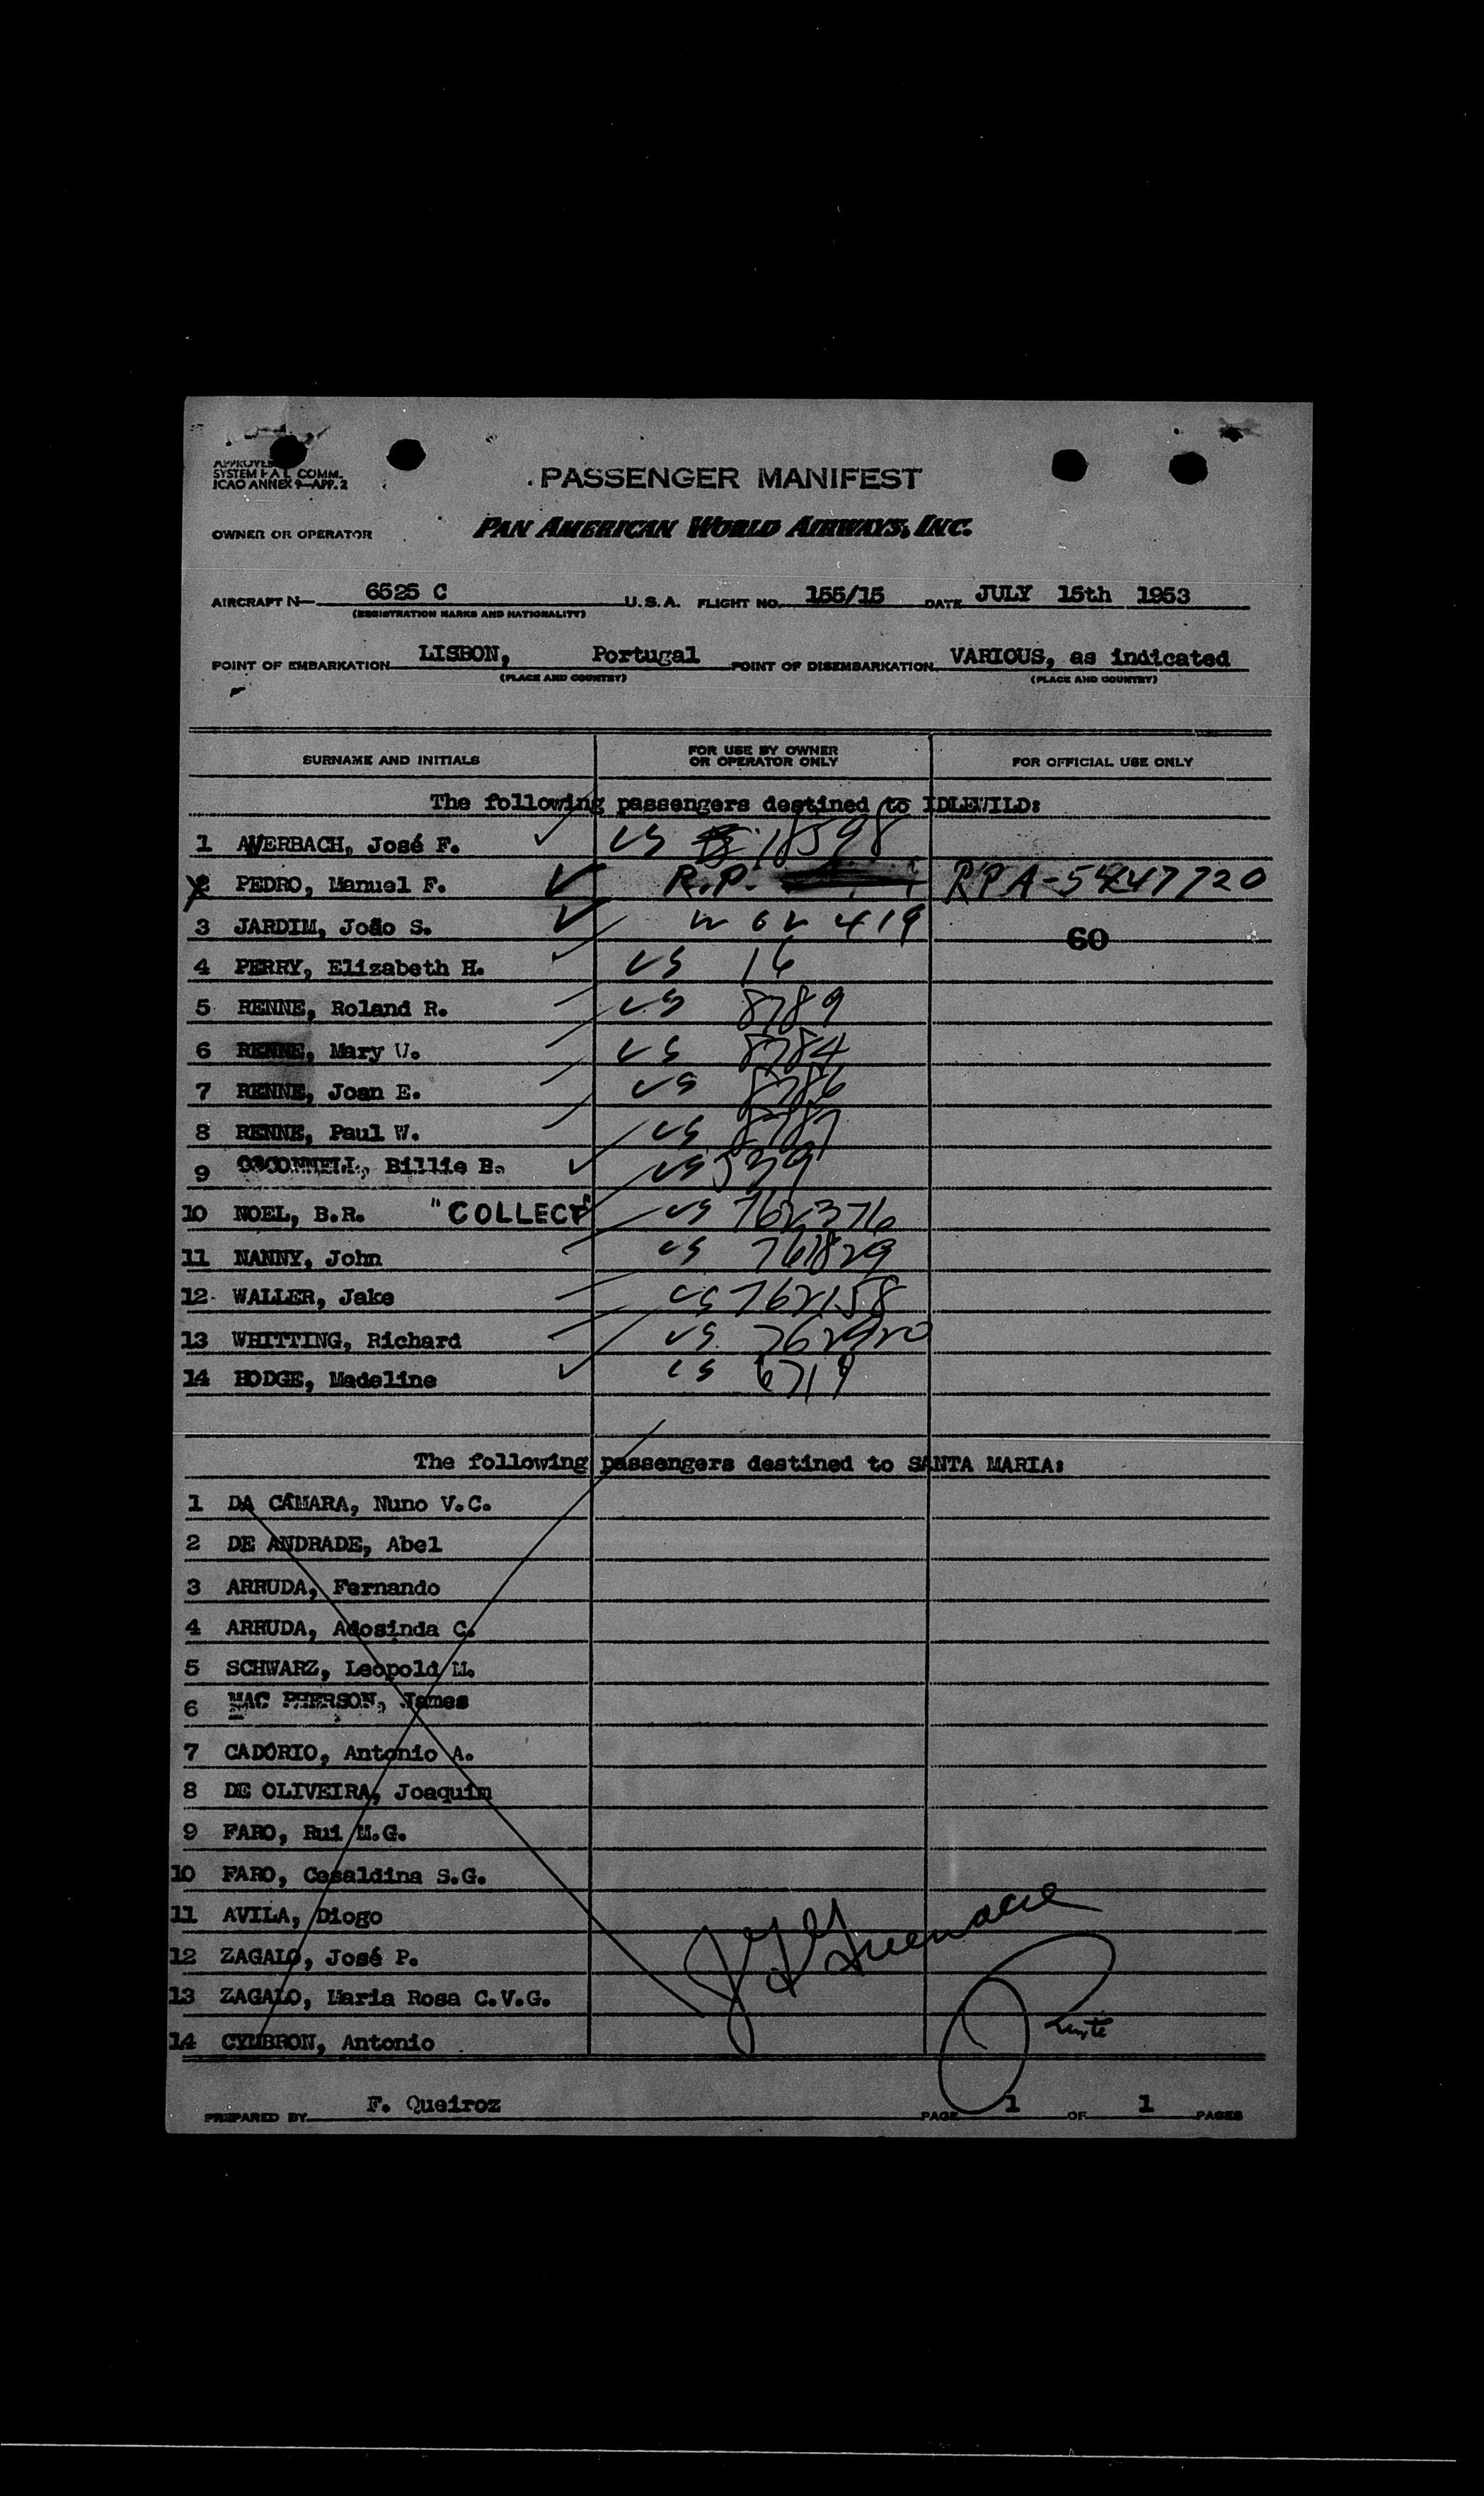 APPROVED
SYSTEM F.A.L. COMM.
ICAO ANNEX 9—APP. 2
PASSENGER MANIFEST
OWNER OR OPERATOR PAN AMERICAN WORLD AIRWAYS, INC.
AIRCRAFT N— 6525 C U.S.A. FLIGHT NO. 155/15 DATE JULY 15th 1953
(REGISTRATION MARKS AND NATIONALITY)
POINT OF EMBARKATION LISBON, Portugal POINT OF DISEMBARKATION VARIOUS, as indicated
(PLACE AND COUNTRY) (PLACE AND COUNTRY)
SURNAME AND INITIALS FOR USE BY OWNER OR OPERATOR ONLY FOR OFFICIAL USE ONLY
The following passengers destined to IDLEWILD:
1 AVERBACH, José F. US 18598
2 PEDRO, Manuel F. R.P. RPA-5447720
3 JARDIM, João S. 419
60
4 PERRY, Elizabeth H. US 16
5 RENNE, Roland R. US 8789
6 RENNE, Mary U. US 8784
7 RENNE, Joan E. US 8786
8 RENNE, Paul W. US 8787
9 O'CONNELL, Billie B. US 539
10 NOEL, B.R. "COLLECT" US 762376
11 NANNY, John US 761829
12 WALLER, Jake US 762158
13 WHITTING, Richard US 762920
14 HODGE, Madeline US 6719
The following passengers destined to SANTA MARIA:
1 DA CÂMARA, Nuno V.C.
2 DE ANDRADE, Abel
3 ARRUDA, Fernando
4 ARRUDA, Adosinda C.
5 SCHWARZ, Leopold M.
6 MAC PHERSON, James
7 CADÓRIO, Antonio A.
8 DE OLIVEIRA, Joaquim
9 FARO, Rui M.G.
10 FARO, Casaldina S.G.
11 AVILA, Diogo
12 ZAGALO, José P.
13 ZAGALO, Maria Rosa C.V.G.
14 CYMBRON, Antonio
PREPARED BY F. Queiroz PAGE 1 OF 1 PAGES